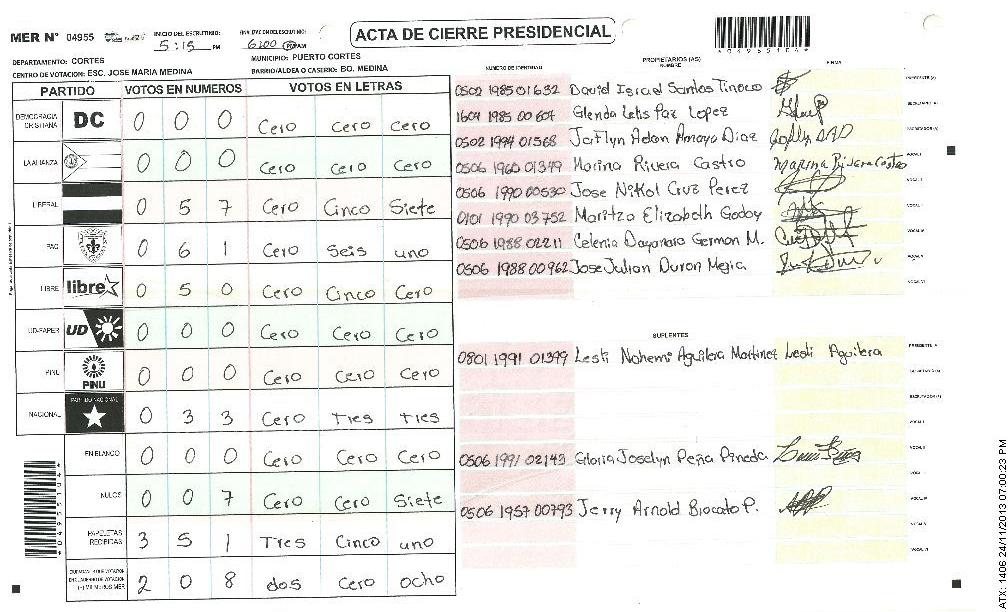 MER N° 04955 INICIO DEL ESCRUTINIO: 5:15 PM 6:00 PM
ACTA DE CIERRE PRESIDENCIAL
*04955104*
DEPARTAMENTO: CORTES MUNICIPIO: PUERTO CORTES
CENTRO DE VOTACION: ESC. JOSE MARIA MEDINA BARRIO/ALDEA O CASERIO: BO. MEDINA
PARTIDO VOTOS EN NUMEROS VOTOS EN LETRAS
DEMOCRACIA CRISTIANA DC 0 0 0 Cero Cero Cero
LA ALIANZA 0 0 0 Cero Cero Cero
LIBERAL 0 5 7 Cero Cinco Siete
PAC 0 6 1 Cero Seis uno
LIBRE libre 0 5 0 Cero Cinco Cero
UD-FAPER UD 0 0 0 Cero Cero Cero
PINU PINU 0 0 0 Cero Cero Cero
NACIONAL PARTIDO NACIONAL 0 3 3 Cero Tres tres
EN BLANCO 0 0 0 Cero Cero Cero
NULOS 0 0 7 Cero Cero Siete
PAPELETAS RECIBIDAS 3 5 1 Tres Cinco uno
2 0 8 dos Cero ocho
*04955104*
PROPIETARIOS (AS)
NUMERO DE IDENTIDAD NOMBRE FIRMA
0502 1985 01632 David Israel Santos Tinoco PRESIDENTE (A)
1604 1985 00607 Glenda Letis Paz Lopez SECRETARIO (A)
0502 1994 01568 Jaflyn Adon Amaya Diaz ESCRUTADOR (A)
0506 1960 01379 Marina Rivera Castro Marina Rivera Castro VOCAL I
0506 1990 00530 Jose Nikol Cruz Perez VOCAL II
0101 1990 03752 Maritza Elizabeth Godoy VOCAL III
0506 1988 02211 Celenia Dayanara German M. VOCAL IV
0506 1988 00962 Jose Julian Duron Mejia VOCAL V
VOCAL VI
SUPLENTES
0801 1991 01399 Lesli Nohemi Aguilera Martinez Lesli Aguilera PRESIDENTE (A)
SECRETARIO (A)
ESCRUTADOR (A)
VOCAL I
0506 1991 02143 Gloria Joselyn Peña Pineda VOCAL II
VOCAL III
0506 1957 00793 Jerry Arnold Brocato P. VOCAL IV
VOCAL V
VOCAL VI
ATX: 1406 24/11/2013 07:00:23 PM